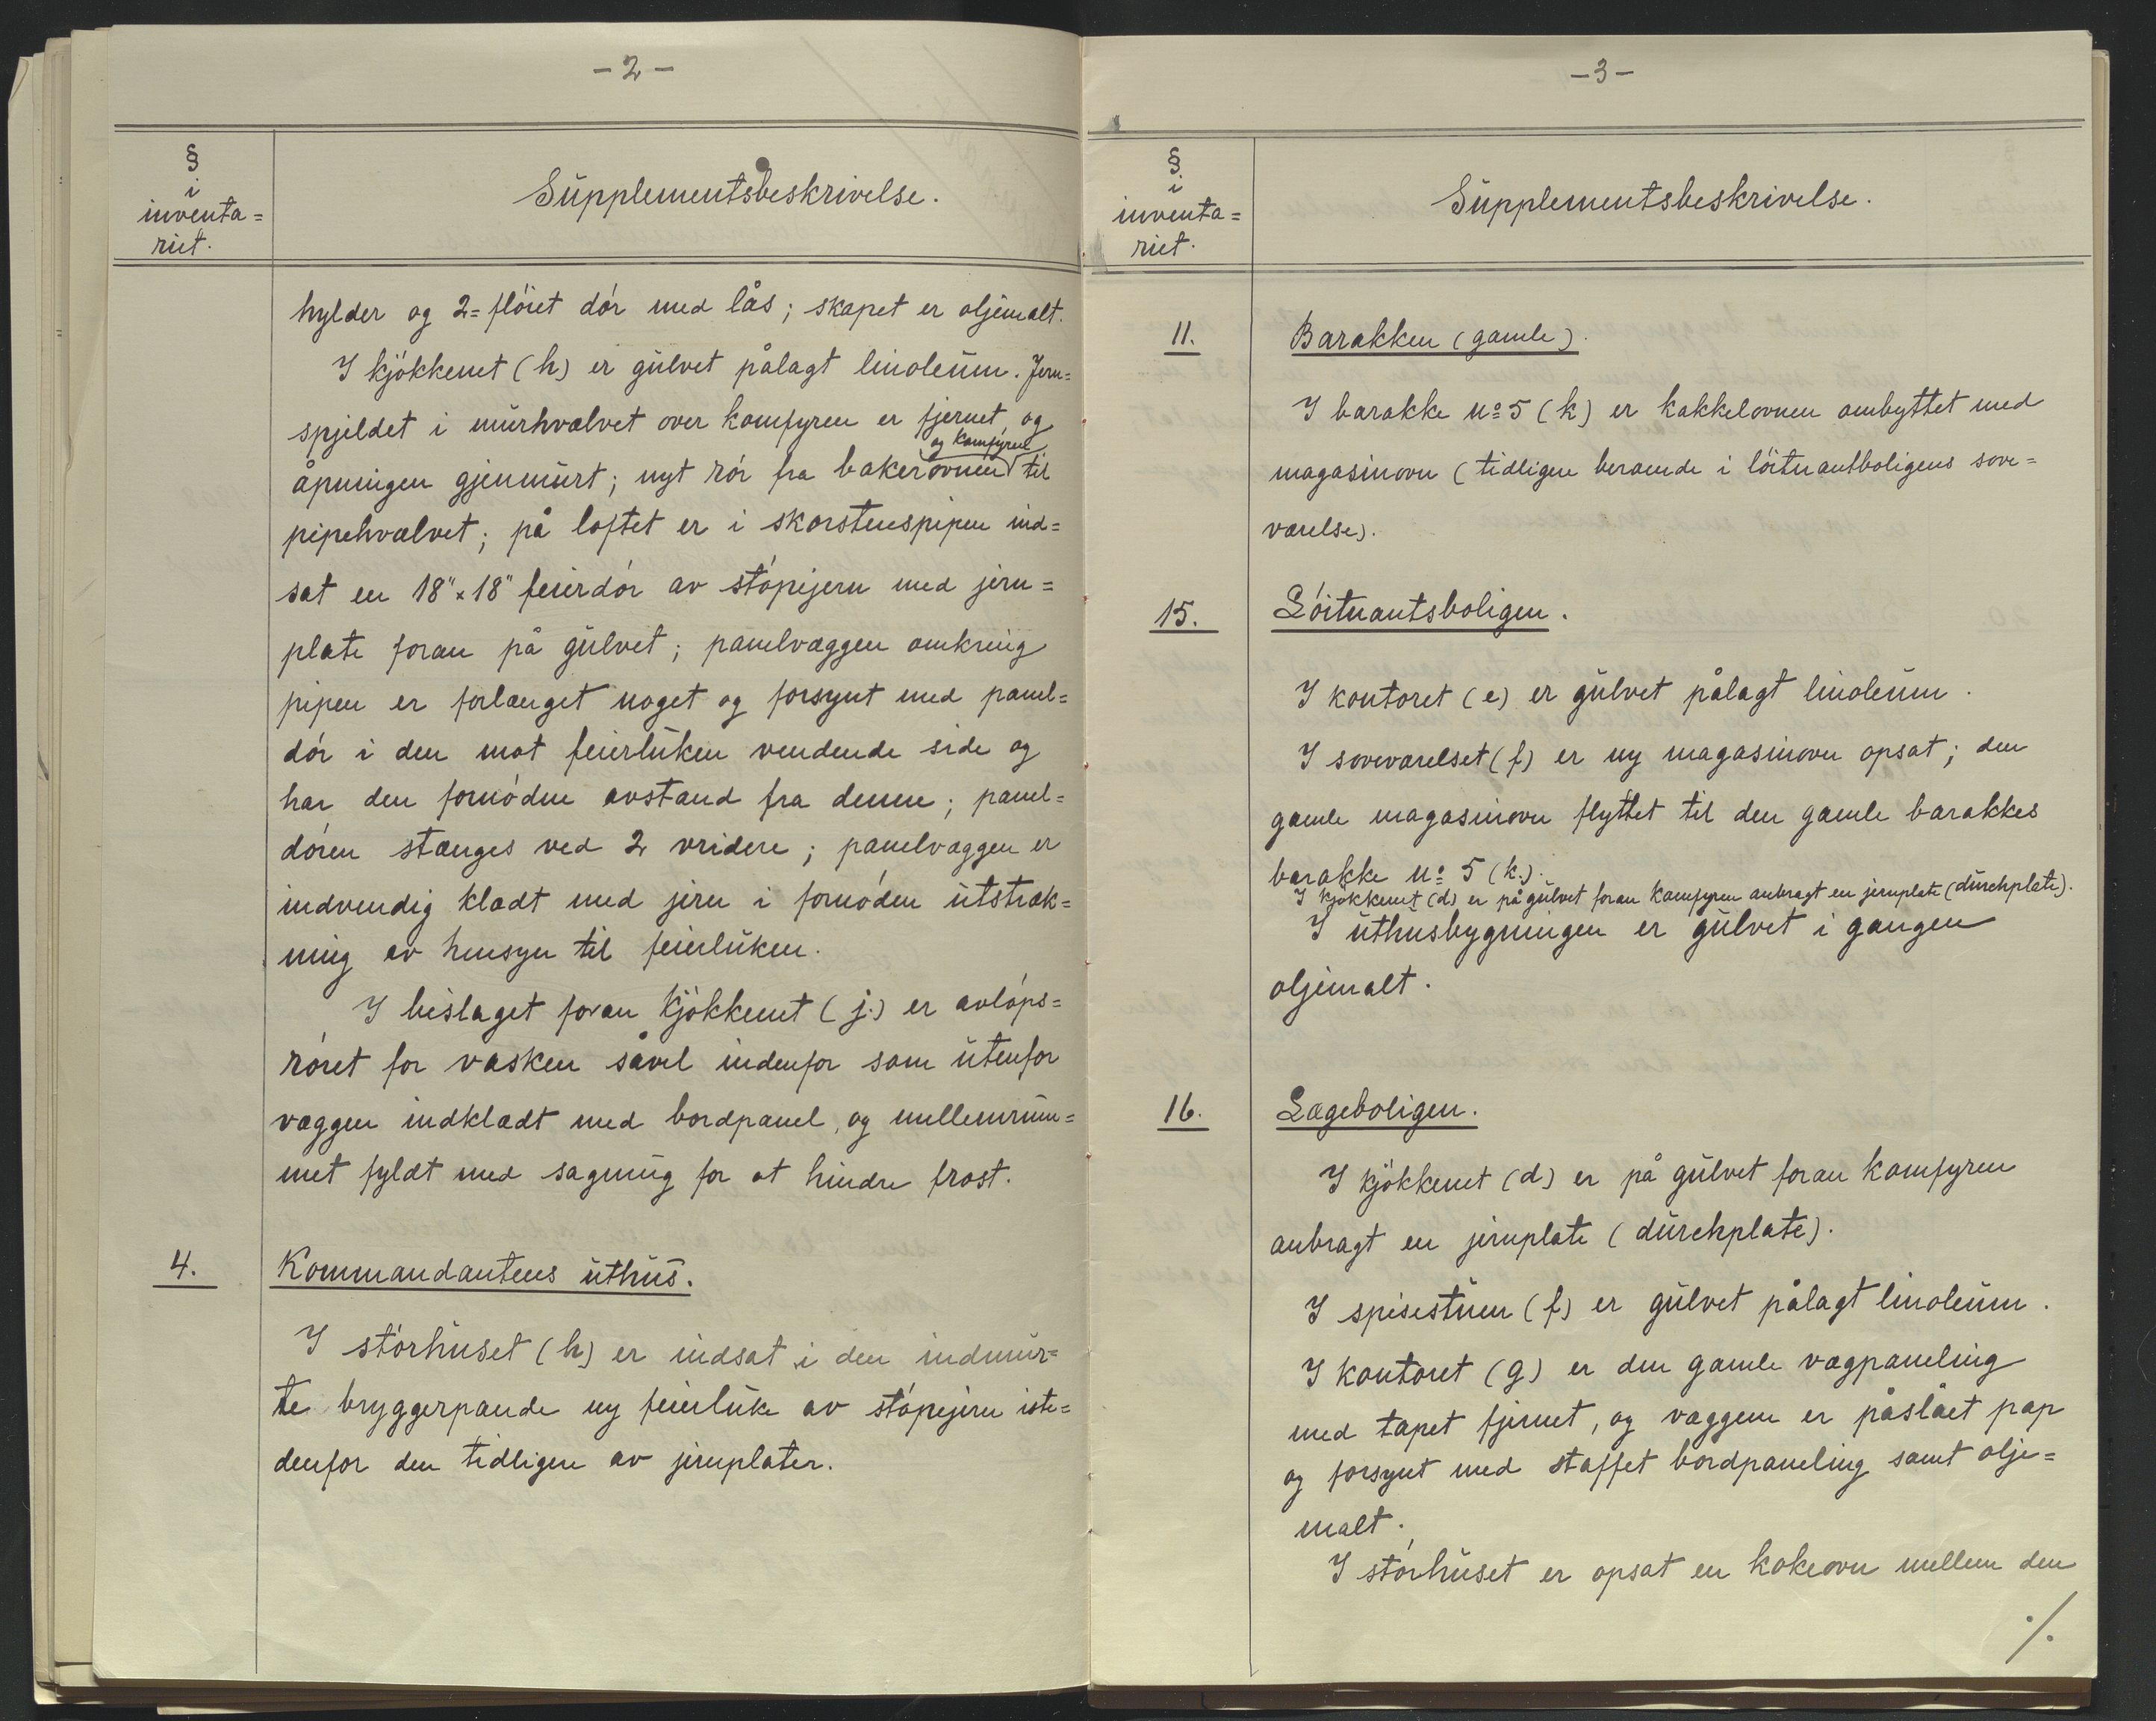 - 2 -
§
i
inventa=
riet.
Supplementsbeskrivelse.
hylder og 2=fløiet dør med lås; skapet er oljemalt.
I kjøkkenet (h) er gulvet pålagt linoleum. Jern=
spjeldet i murhvælvet over komfyren er fjernet og
og komfyren
åpningen gjenmurt; nyt rør fra bakerovnen til
pipehvælvet; på loftet er i skorstenspipen ind=
sat en 18" x 18" feierdør av støpejern med jern=
plate foran på gulvet; panelvæggen omkring
pipen er forlænget noget og forsynt med panel=
dør i den mot feierluken vendende side og
har den fornødne avstand fra denne; panel=
døren stænges ved 2 vridere; panelvæggen er
indvendig klædt med jern i fornøden utstræk=
ning av hensyn til feierluken.
I bislaget foran kjøkkenet (j.) er avløps=
røret for vasken såvel indenfor som utenfor
væggen indklædt med bordpanel, og mellemrum=
met fyldt med sagmug for at hindre frost.
4.
Kommandantens uthus.
I størhuset (h) er indsat i den indmur=
te bryggerpande ny feierluke av støpejern iste=
denfor den tidligere av jernplater.
- 3 -
§
i
inventa=
riet.
Supplementsbeskrivelse.
11.
Barakken (gamle).
I barakke No 5 (k) er kakkelovnen ombyttet med
magasinovn (tidligere beroende i löitnantboligens sove=
værelse).
15.
Löitnantsboligen.
I kontoret (e) er gulvet pålagt linoleum.
I soveværelset (f) er ny magasinovn opsat; den
gamle magasinovn flyttet til den gamle barakkes
barakke No 5 (k.).
I kjøkkenet (d) er på gulvet foran komfyren anbragt en jernplate (dürchplate).
I uthusbygningen er gulvet i gangen
oljemalt.
16.
Lægeboligen.
I kjøkkenet (d) er på gulvet foran komfyren
anbragt en jernplate (dürchplate).
I spisestuen (f) er gulvet pålagt linoleum.
I kontoret (g) er den gamle vægpaneling
med tapet fjernet, og væggene er påslået pap
og forsynt med staffet bordpaneling samt olje=
malt.
I størhuset er opsat en kokeovn mellem den
./.